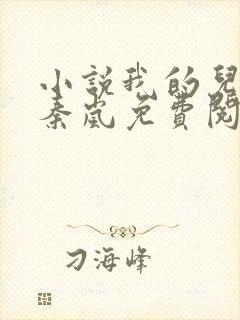 小説我的兒
秦嵐免費閱
刁海峰